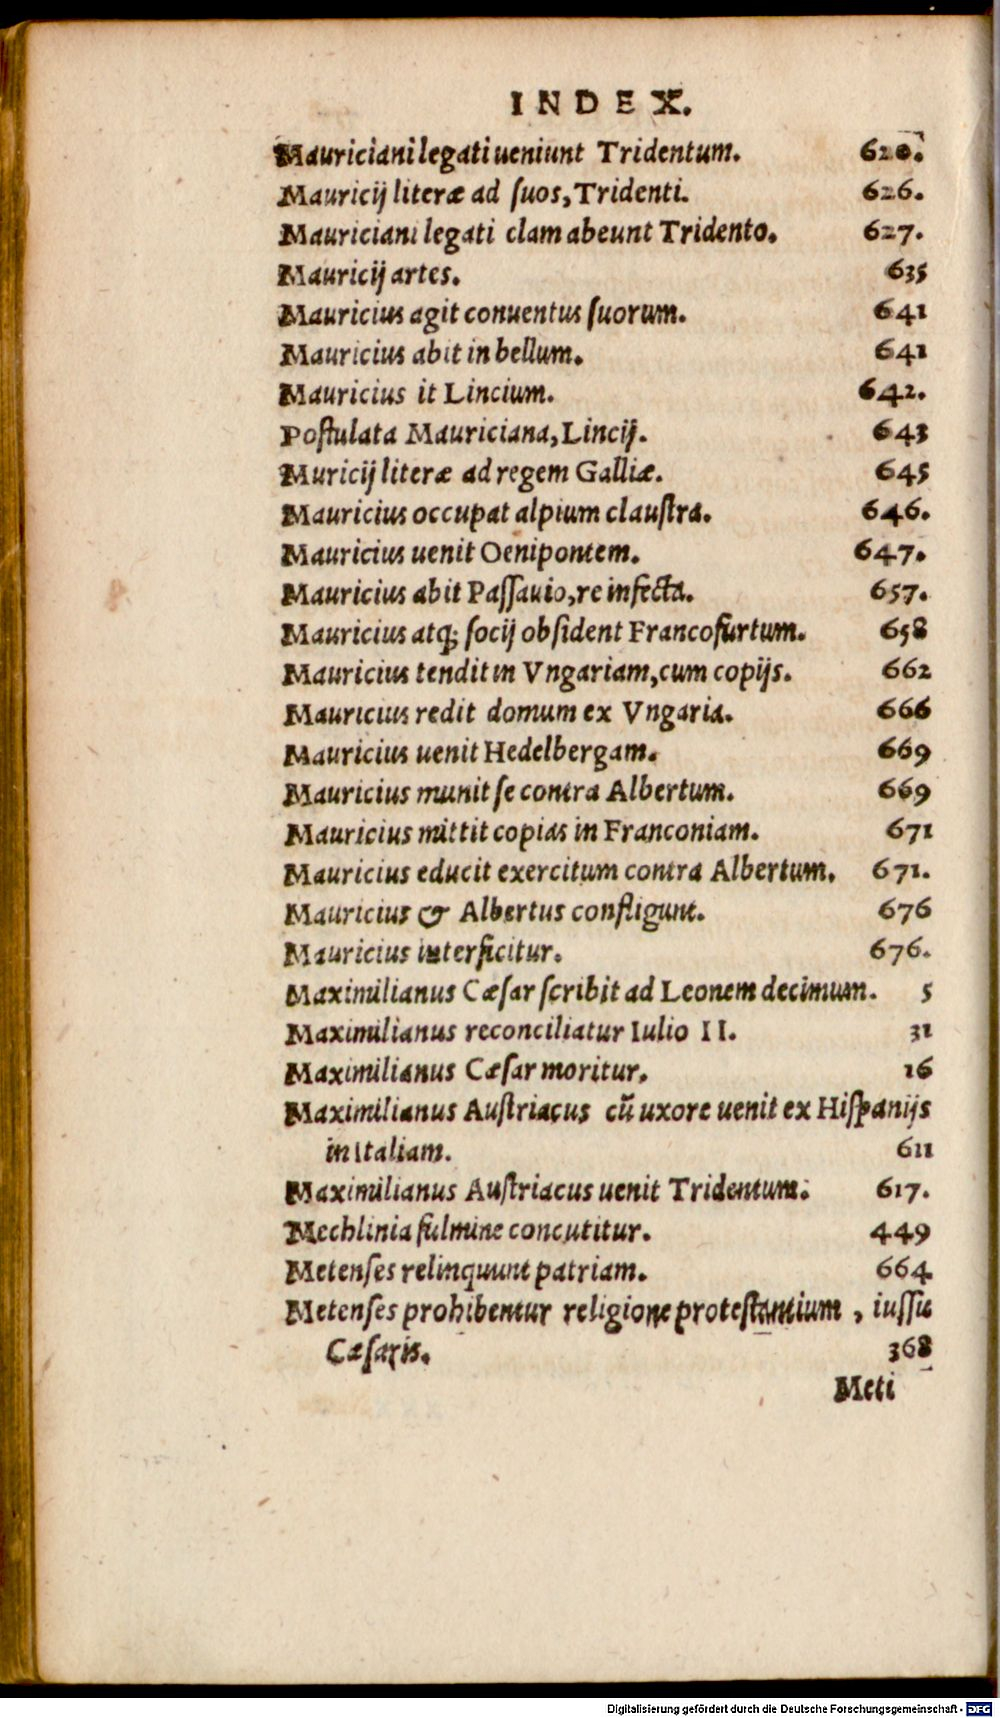 INDEX.
Mauriciani legati ueniunt Tridentum. 620.
Mauricij literæ ad ſuos, Tridenti. 626.
Mauriciani legati clam abeunt Tridento. 627.
Mauricij artes. 635
Mauricius agit conuentus ſuorum. 641
Mauricius abit in bellum. 641
Mauricius it Lincium. 642.
Poſtulata Mauriciana, Lincij. 643
Muricij literæ ad regem Galliæ. 645
Mauricius occupat alpium clauſtra. 646.
Mauricius uenit Oenipontem. 647.
Mauricius abit Paſſauio, re infecta. 657.
Mauricius atq; ſocij obſident Francofurtum. 658
Mauricius tendit in Vngariam, cum copijs. 662
Mauricius redit domum ex Vngaria. 666
Mauricius uenit Hedelbergam. 669
Mauricius munit ſe contra Albertum. 669
Mauricius mittit copias in Franconiam. 671
Mauricius educit exercitum contra Albertum. 671.
Mauricius & Albertus confligunt. 676
Mauricius interficitur. 676.
Maximilianus Cæſar ſcribit ad Leonem decimum. 5
Maximilianus reconciliatur Iulio II. 31
Maximilianus Cæſar moritur. 16
Maximilianus Auſtriacus cū uxore uenit ex Hiſpanijs
in Italiam. 611
Maximilianus Auſtriacus uenit Tridentum. 617.
Mechlinia fulmine concutitur. 449
Metenſes relinquunt patriam. 664
Metenſes prohibentur religione proteſtantium, iuſſu
Cæſaris. 368
Meti
Digitalisierung gefördert durch die Deutsche Forschungsgemeinschaft - DFG